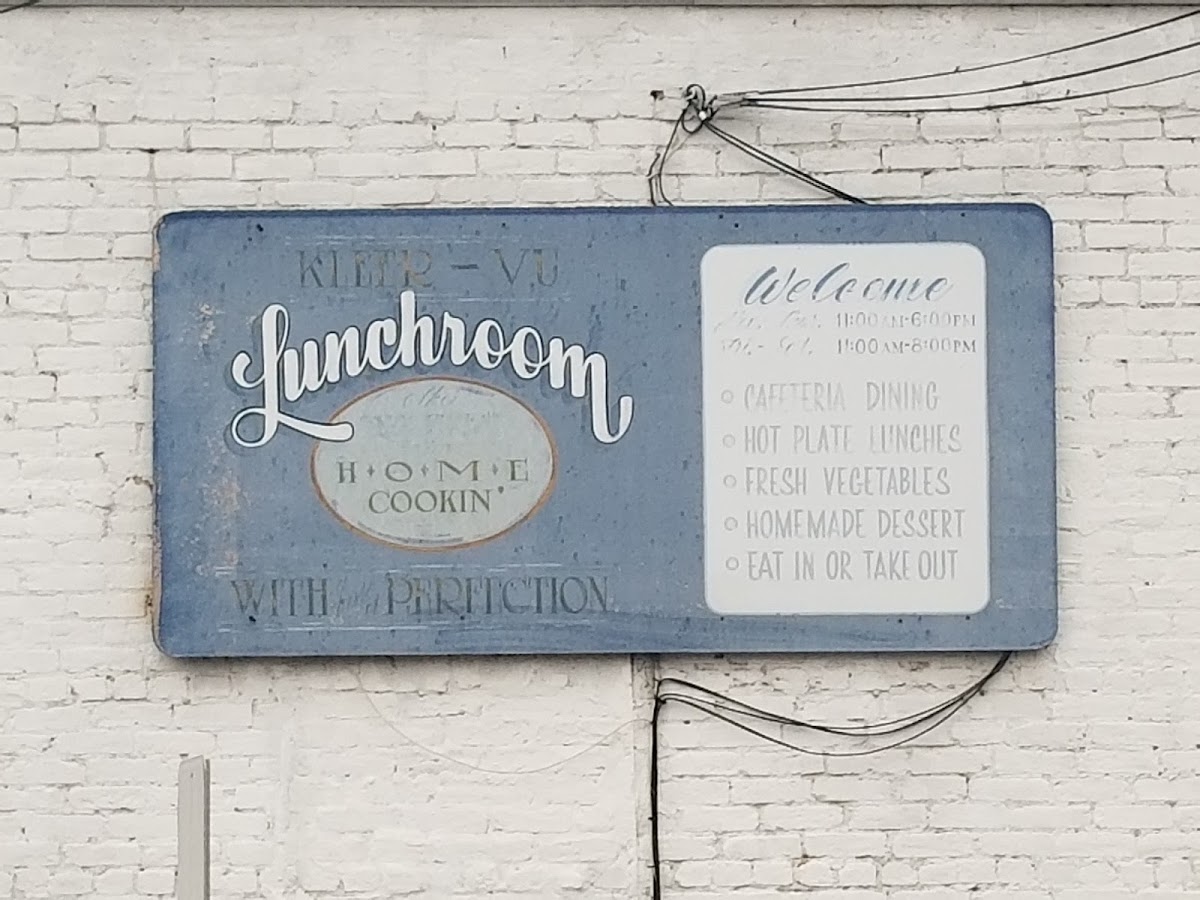 KLEER-VU
Lunchroom
HOME
COOKIN'
WITH PERFECTION
Welcome
11:00AM-6:00PM
11:00AM-8:00PM
CAFETERIA DINING
HOT PLATE LUNCHES
FRESH VEGETABLES
HOMEMADE DESSERT
EAT IN OR TAKE OUT